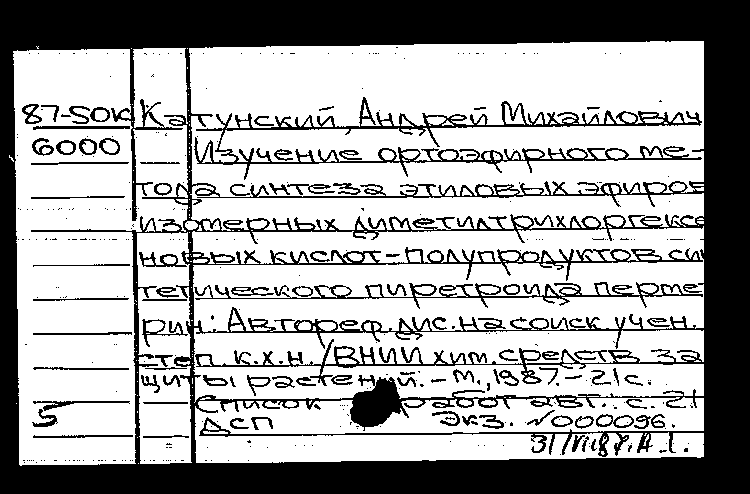 87-50К Катунский, Андрей Михайлович
6000 Изучение ортоэфирного ме-
тода синтеза этиловых эфиров
изомерных диметилтрихлоргексе
новых кислот-полупродуктов син
тетического пиретроида перме
рин: Автореф. дис. на соиск. учен.
степ. к.х.н. /ВНИИ хим. средств за
щиты растений. - М., 1987. - 21 с.
Список работ авт.: с. 21
5 ДСП Экз. №000096.